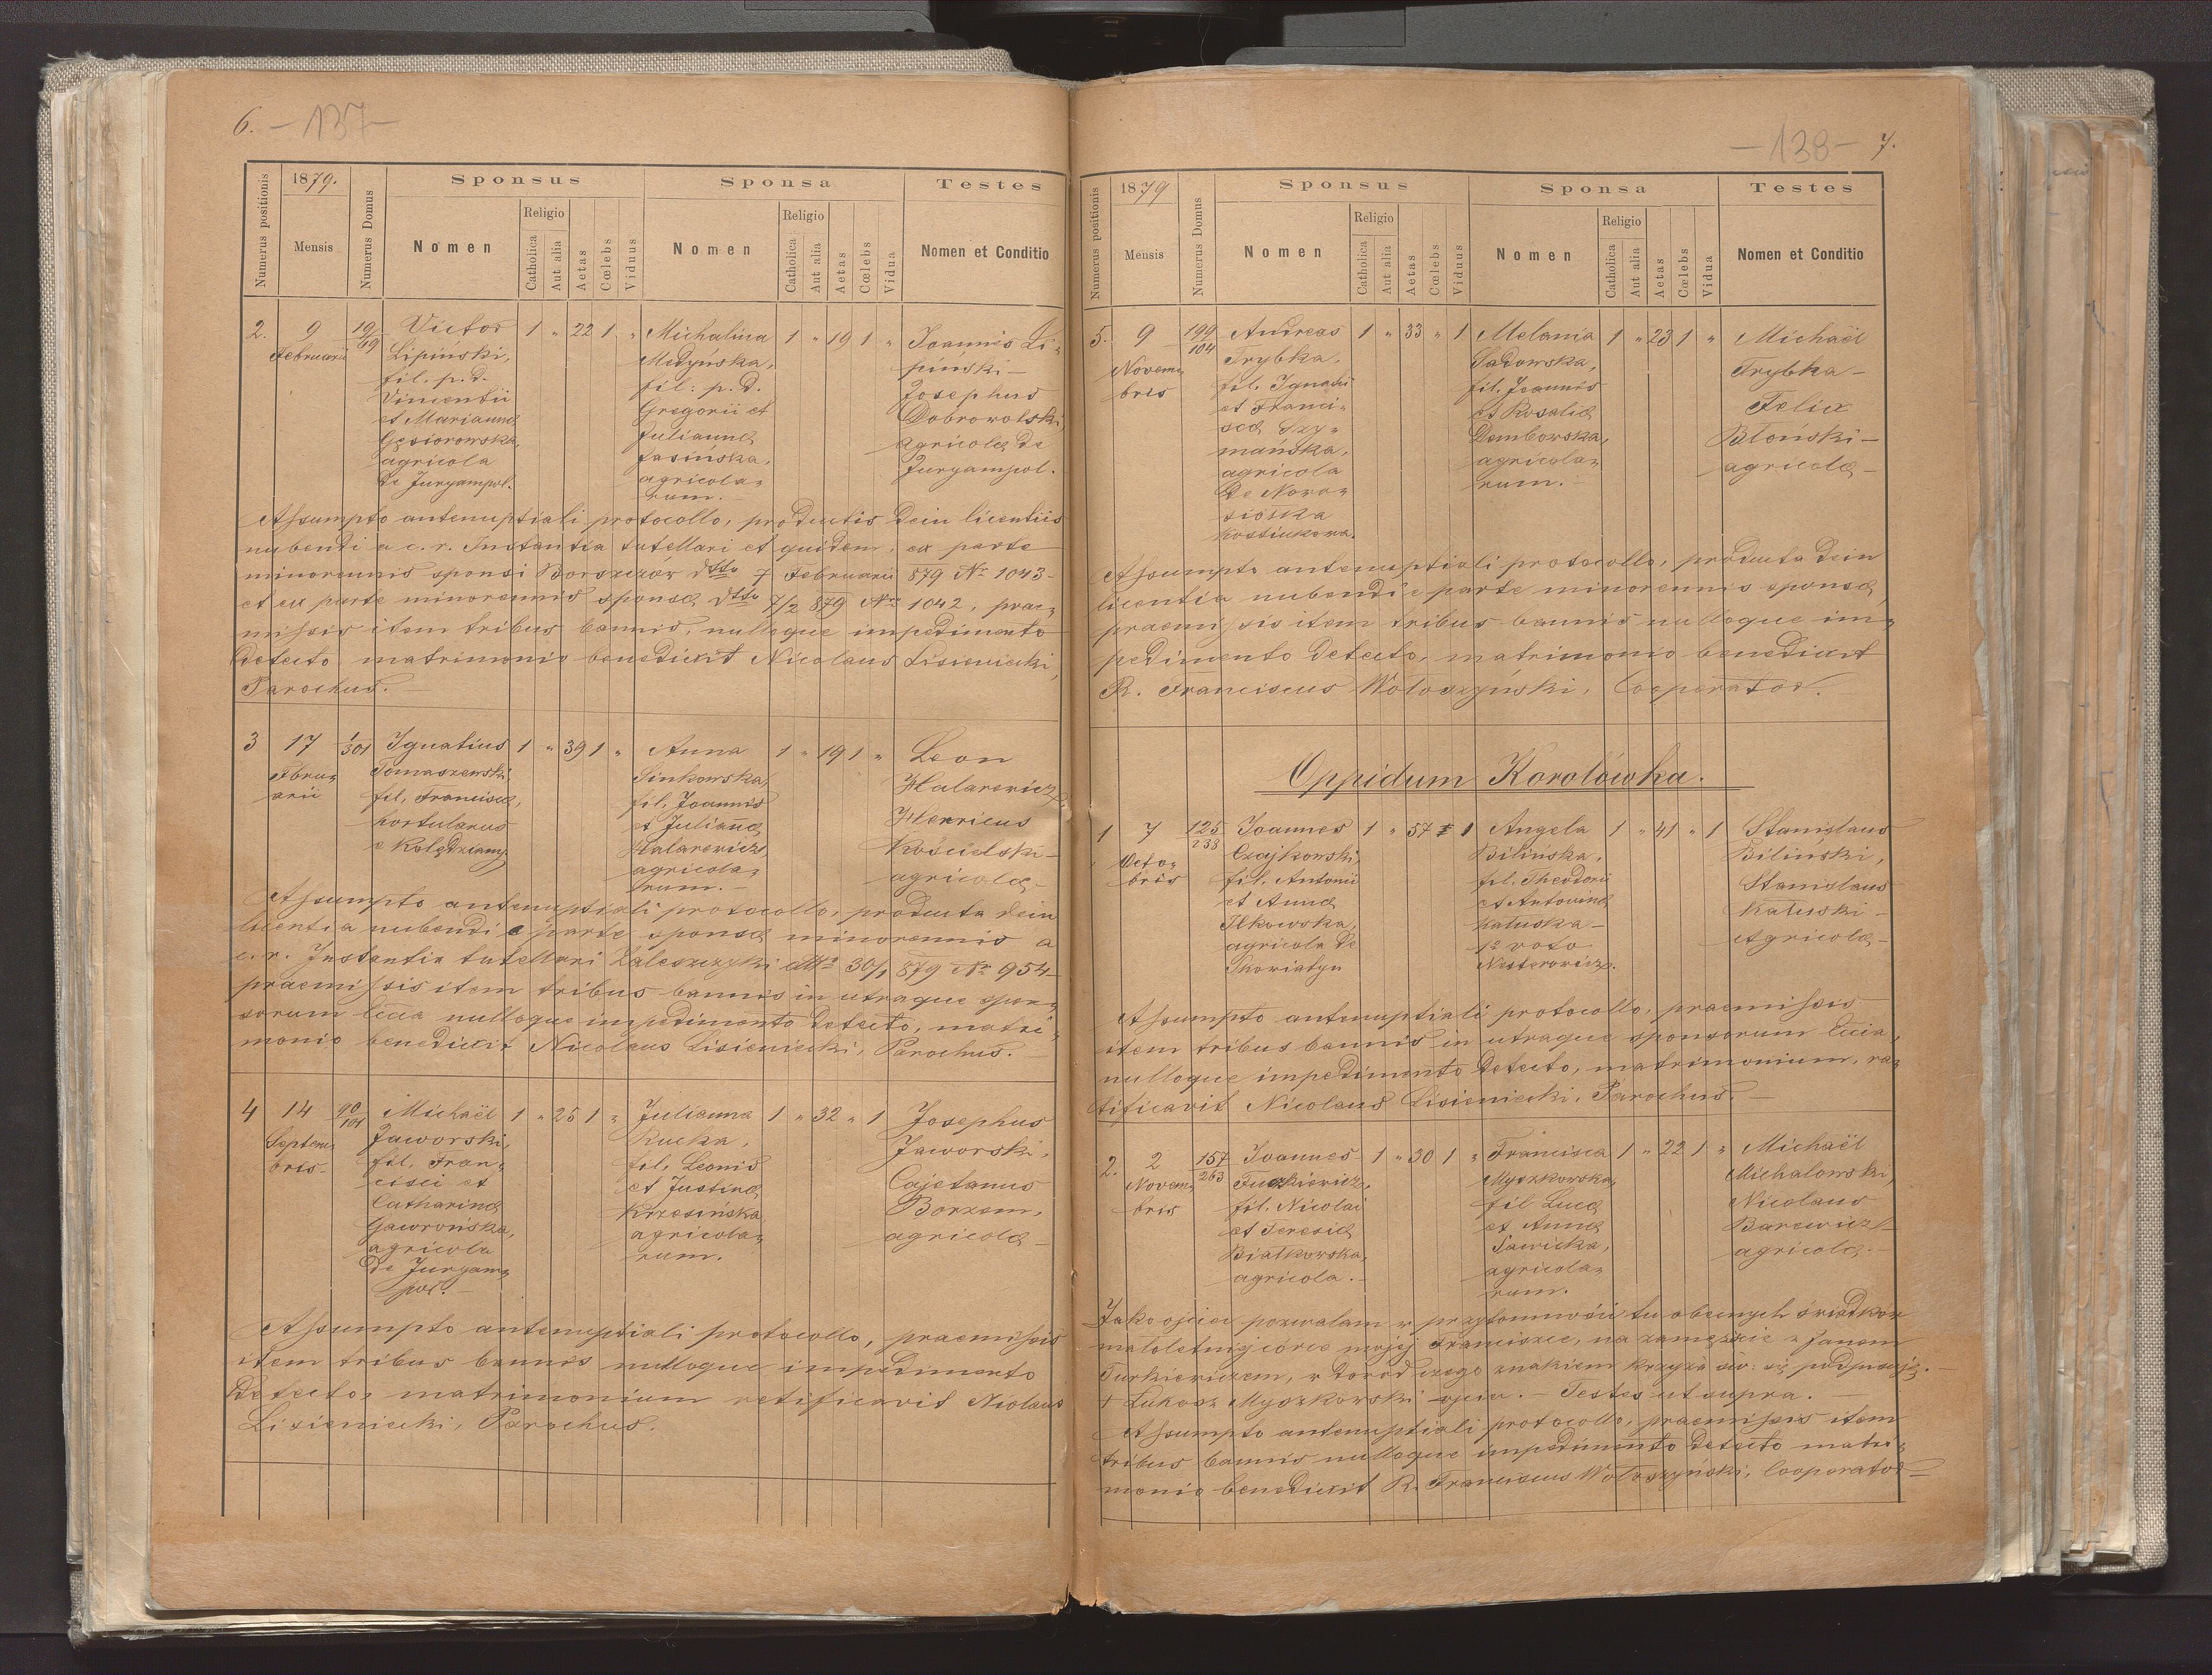 6. -137-
1879.
Numerus positionis
Mensis
Numerus Domus
Sponsus
Nomen
Religio
Catholica
Aut alia
Aetas
Cœlebs
Viduus
Sponsa
Nomen
Religio
Catholica
Aut alia
Aetas
Cœlebs
Vidua
Testes
Nomen et Conditio
2.
9
Februarii
19/69
Victor
Lipiński,
fil. p. d.
Vincentii
et Marianna
Gęsiorowska,
agricola
de Juryampol.
1 " 22 1 "
Michalina
Medyńska,
fil: p. d.
Gregorii et
Julianna
Jasińska,
agricola=
rum.-
1 " 19 1 "
Joannes Li=
piński-
Josephus
Dobrowolski,
agricolæ de
Juryampol.
Assumpto antenuptiali protocollo, productis dein licentiis
nubendi a c. r. Instantia tutellari et quidem, ex parte
minorennis sponsi Borszczów dtto 7 Februarii 879 Nr 1043-
et ex parte minorennis sponsæ dtto 7/2 879 Nr 1042, prae=
missis item tribus bannis, nulloque impedimento
detecto matrimonio benedixit Nicolaus Lisieniecki,
Parochus.-
3
17
Febru=
arii
1/301
Ignatius
Tomaszewski
fil. Franciscæ,
hortulanus
e Kolędziany
1 " 39 1 "
Anna
Sinkowska,
fil. Joannis
et Julianna
Halarewicz,
agricola=
rum.-
1 " 19 1 "
Leon
Halarewicz
Henricus
Kościelski-
agricolæ-
Assumpto antenuptiali protocollo, producta dein
licentia nubendi e parte sponsæ minorennis a
c. r. Instantia tutellari Zaleszczyki dtto 30/1 879 Nr 954
praemissis item tribus bannis in utraque spon=
sorum lccia nulloque impedimento detecto, matri=
monio benedixit Nicolaus Lisieniecki, Parochus.-
4
14
Septem=
bris-
90/101
Michaël
Jaworski,
fil. Fran=
cisci et
Catharina
Gawrońska,
agricola
de Juryam=
pol.-
1 " 25 1 "
Julianna
Rucka,
fil. Leonis
et Justina
Krzesińska
agricola=
rum.
1 " 32 " 1
Josephus
Jaworski,
Cajetanus
Borzem,
agricolæ-
Assumpto antenuptiali protocollo, praemissis
item tribus bannis nulloque impedimento
detecto, matrimonium ratificavit Nicolaus
Lisieniecki, Parochus.
-138- 7.
1879
Numerus positionis
Mensis
Numerus Domus
Sponsus
Nomen
Religio
Catholica
Aut alia
Aetas
Cœlebs
Viduus
Sponsa
Nomen
Religio
Catholica
Aut alia
Aetas
Cœlebs
Vidua
Testes
Nomen et Conditio
5.
9
Novem=
bris
199/104
Andreas
Trybka,
fil. Ignatii
et Franci=
sca Szy=
mańska,
agricola
de Nowo=
siółka
Kostiukowa.
1 " 33 " 1
Melania
Sadowska,
fil. Joannis
et Rosalia
Dembowska,
agricola=
rum.-
1 " 23 1 "
Michaël
Trybka-
Felix
Błoński-
agricolæ-
Assumpto antenuptiali protocollo, producta dein
licentia nubendi e parte minorennis sponsæ,
praemissis item tribus bannis nulloque im=
pedimento detecto, matrimonio benedixit
R. Franciscus Wołoszyński, Cooperator.
Oppidum Korolówka.
1
7
Octo=
bris
125/233
Joannes
Czajkowski,
fil. Antonii
et Anna
Iłkowska,
agricola de
Skowiatyn
1 " 57 1
Angela
Bilińska,
fil. Theodorii
et Antonina
Kałuska-
1o voto
Nesterowicz.
1 " 41 " 1
Stanislaus
Biliński,
Stanislaus
Kałuski-
Agricolæ-
Assumpto antenuptiali protocollo, praemissis
item tribus bannis in utraque sponsorum lccia,
nulloque impedimento detecto, matrimonium, ra=
tificavit Nicolaus Lisieniecki, Parochus.-
2.
2
Novem=
bris
157/263
Joannes
Turkiewicz,
fil. Nicolai
et Teresia
Białkowska,
agricola.-
1 " 30 1 "
Francisca
Myszkowska,
fil Luca
et Anna
Sawicka,
agricola=
rum.
1 " 22 1 "
Michaël
Michalowski,
Nicolaus
Barewicz
agricolæ-
Jako ojciec pozwalam w przytomności tu obecnych świadków
małoletniej córce mojej Franciszce, na zamęzcie z Janem
Turkiewiczem, w dowód czego znakiem krzyża św: się podpisuję.-
+ Łukasz Myszkowski ojciec.- Testes ut supra.-
Assumpto antenuptiali protocollo, praemissis item
tribus bannis nulloque impedimento detecto matri=
monio benedixit R. Franciscus Wołoszyński, Cooperator-